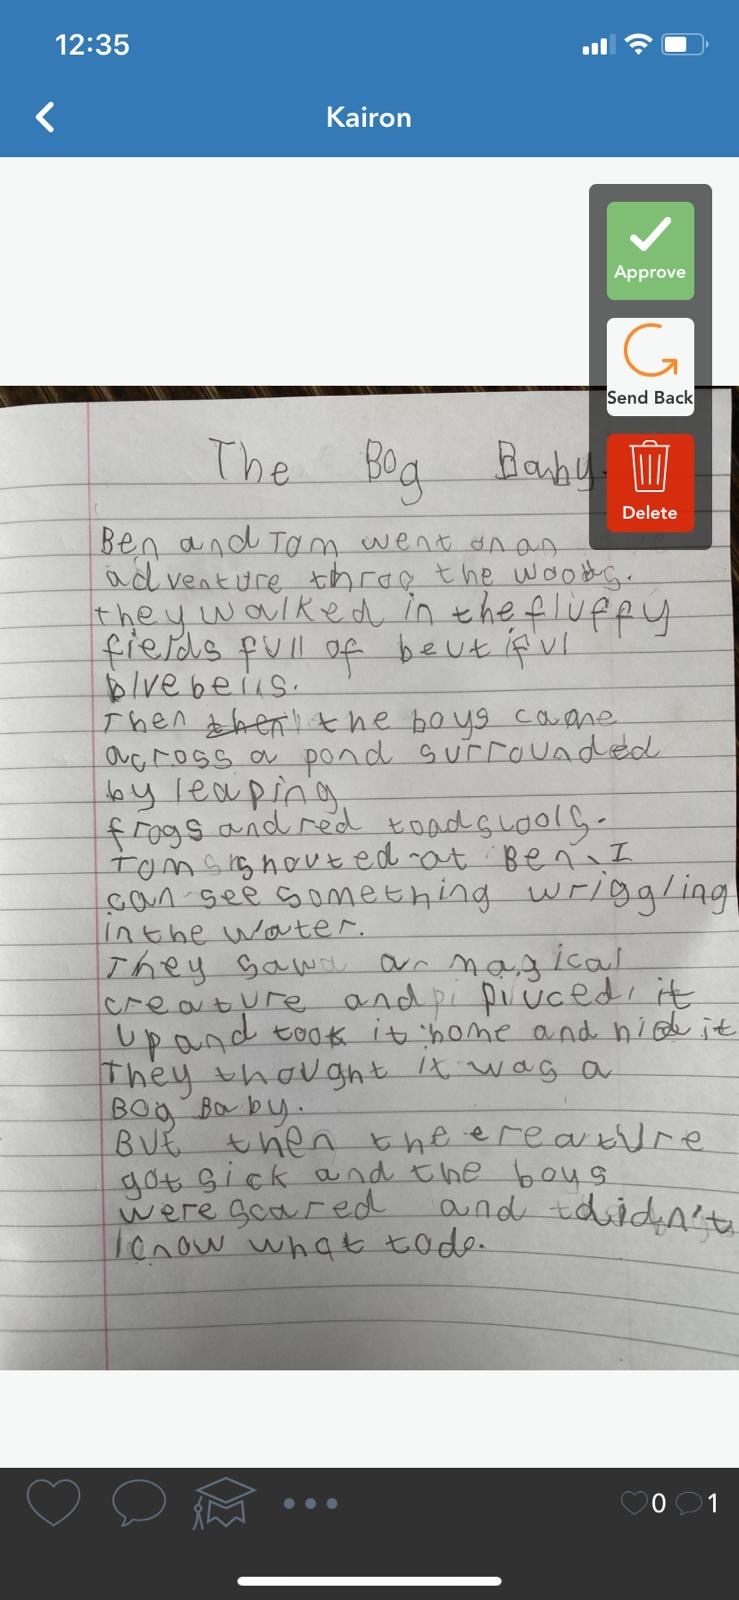 12:35
Kairon
Approve
Send Back
Delete
The Bog Baby.
Ben and Tom went on an
adventure throo the woods.
they walked in the fluffy
fields full of beutiful
bluebells.
Then then the boys came
across a pond surrounded
by leaping
frogs and red toadstools.
Tom shouted at Ben, I
can see something wriggling
in the water.
They saw a magical
creature and piuced it
up and took it home and hid it
They thought it was a
Bog Baby.
But then the creature
got sick and the boys
were scared and didn't
know what to do.
0 1